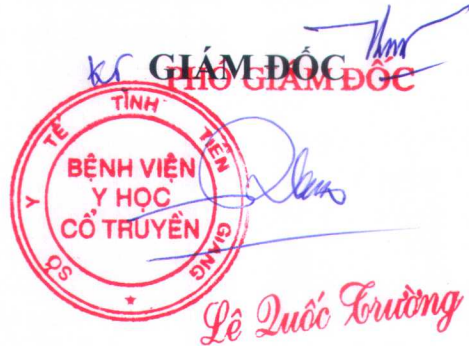 KT GIÁM ĐỐC
PHÓ GIÁM ĐỐC
SỞ Y TẾ TỈNH TIỀN GIANG
BỆNH VIỆN
Y HỌC
CỔ TRUYỀN
Lê Quốc Trường